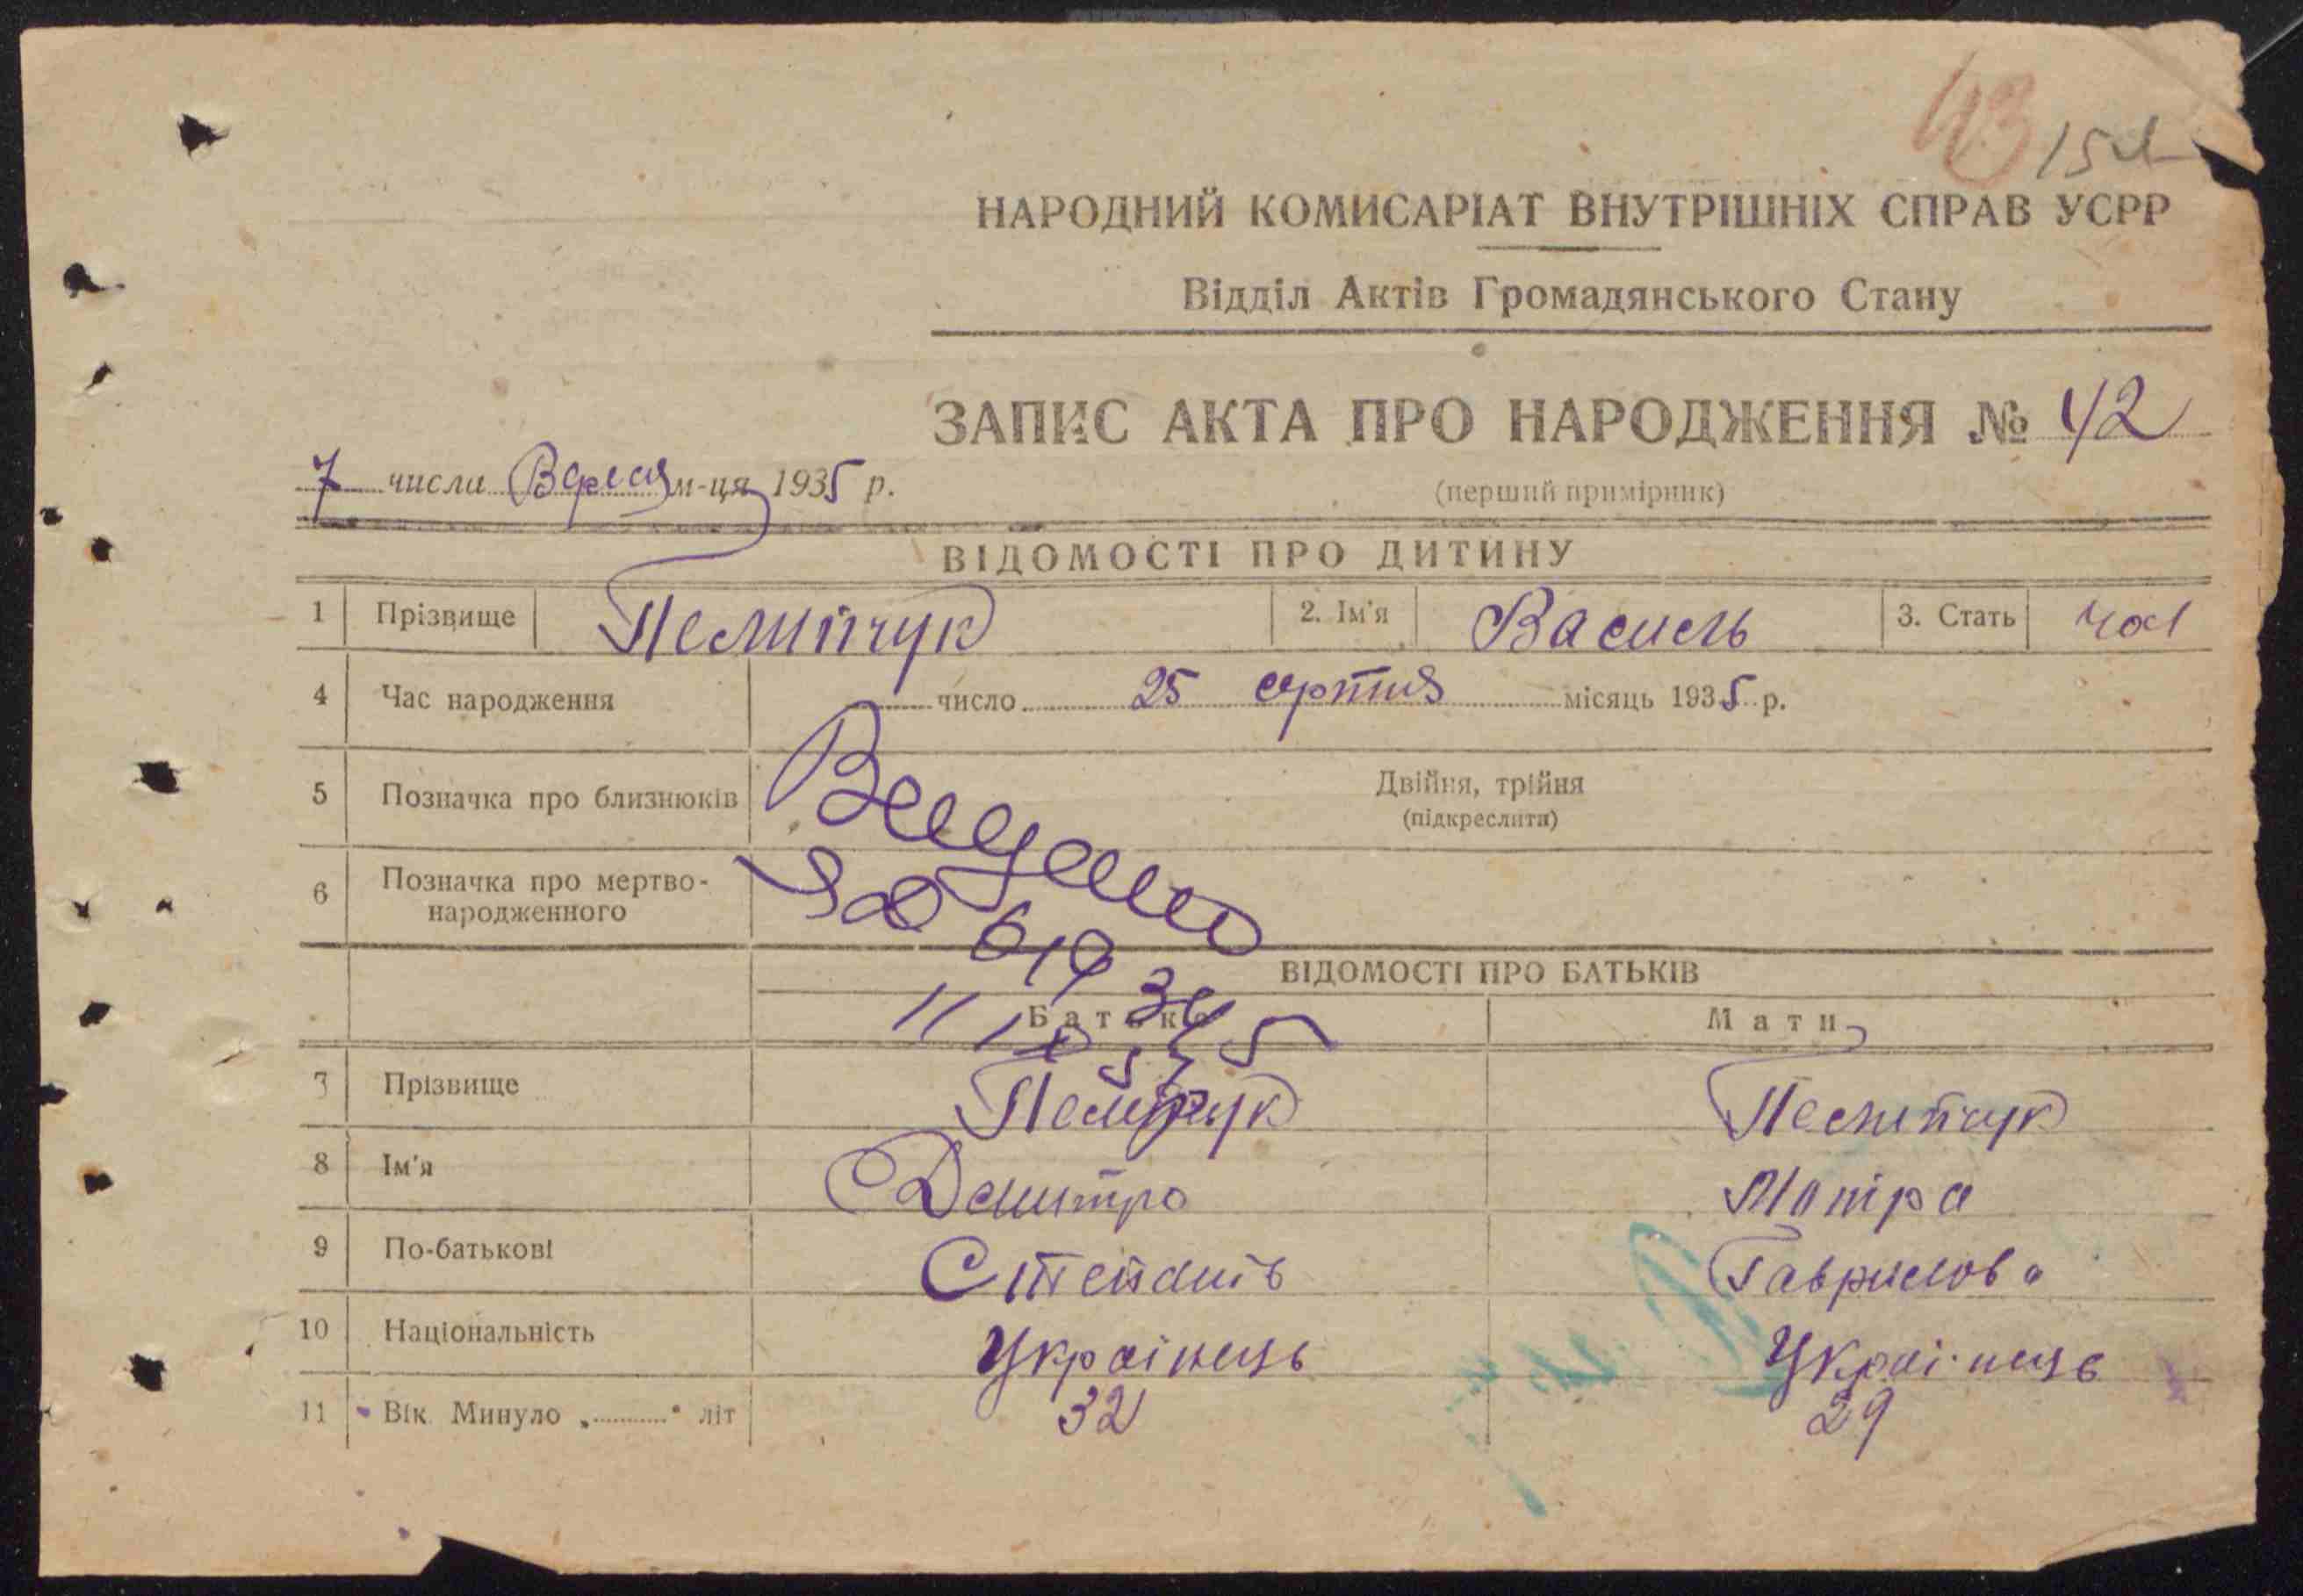 43
НАРОДНИЙ КОМИСАРІАТ ВНУТРІШНІХ СПРАВ УСРР
Відділ Актів Громадянського Стану
ЗАПИС АКТА ПРО НАРОДЖЕННЯ № 42
7 числа Вересня м-ця 1935 р.
(перший примірник)
ВІДОМОСТІ ПРО ДИТИНУ
1 Прізвище Пелипчук 2. Ім'я Василь 3. Стать чол
4 Час народження число 25 серпня місяць 1935 р.
5 Позначка про близнюків Двійня, трійня
(підкреслити)
6 Позначка про мертво-
народженного
ВІДОМОСТІ ПРО БАТЬКІВ
Батько Мати
7 Прізвище Пелипчук Пелипчук
8 Ім'я Дмитро
9 По-батькові Степанів Гаврилова
10 Національність Українець Українець
11 Вік Минуло „............“ літ 32 29